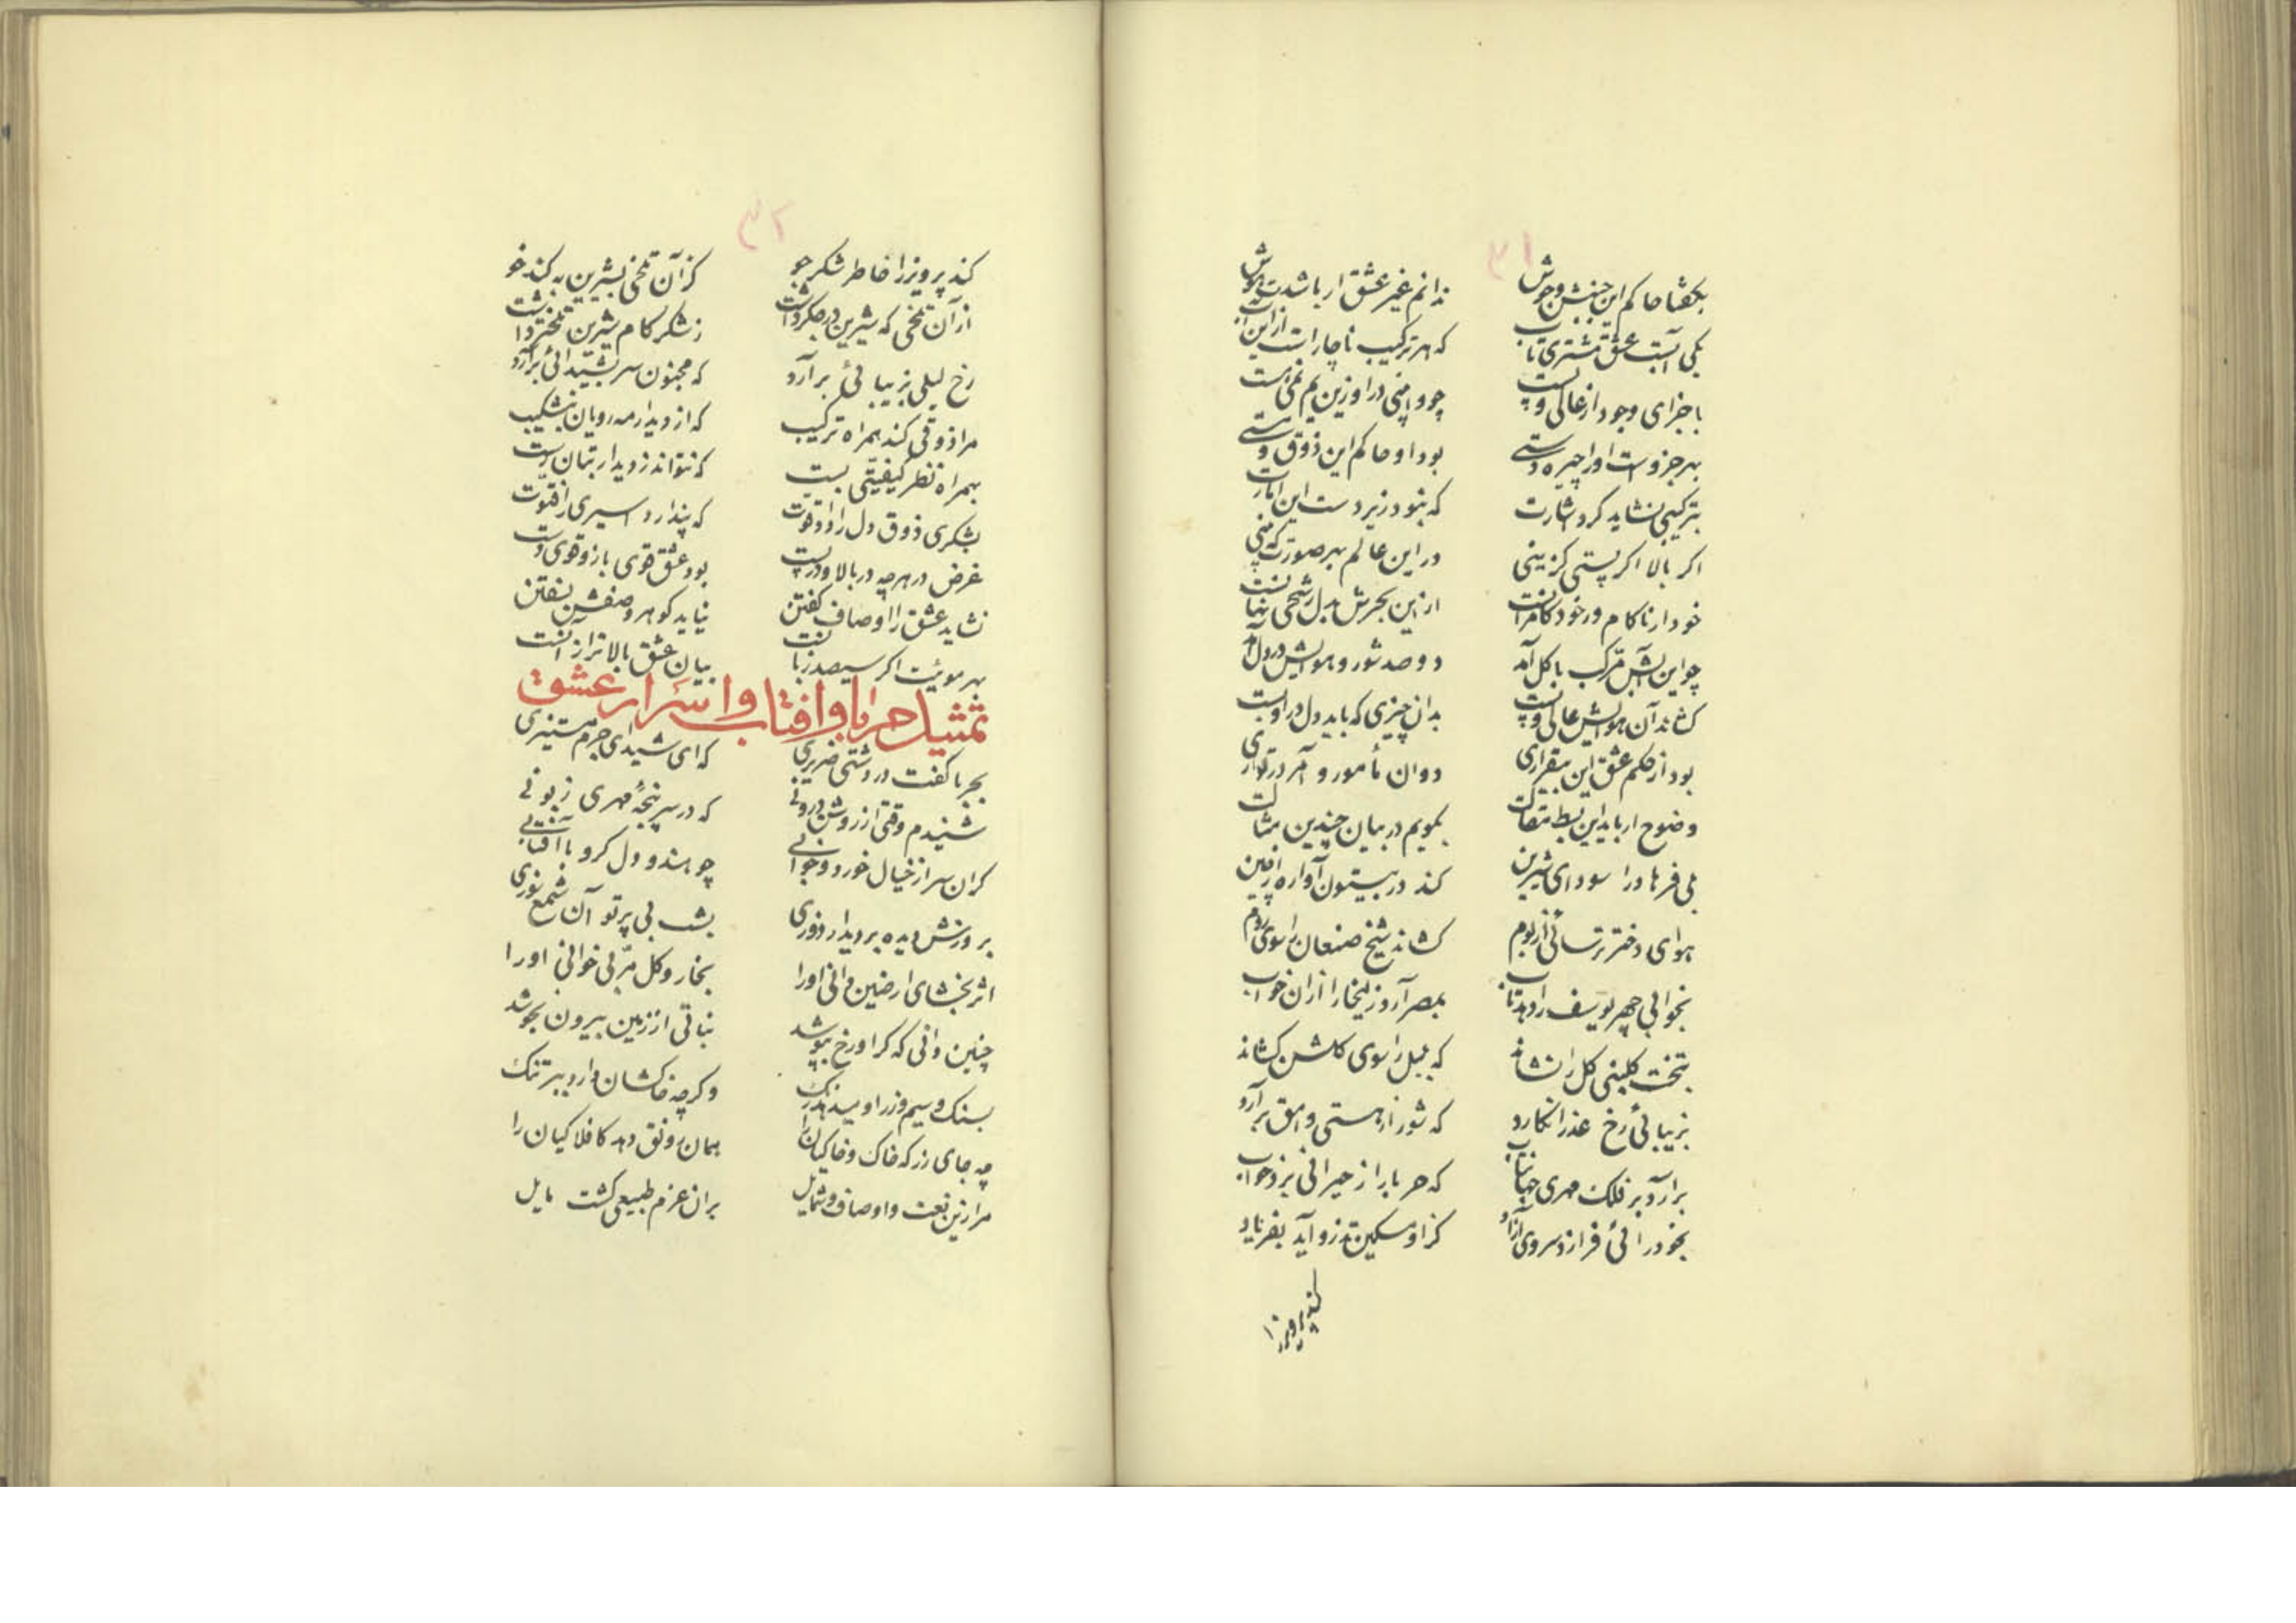 ۳۱
بگفتا حاکم این جنبش و جوش ندانم غیر عشق ار باشدت هوش
یکی آبست عشق مشتری تاب که هر ترکیب ناچار است از این آب
باجزای وجود از عالی و پست چو وابینی در او زین یم نمی هست
بهر جزوست او را چیره دستی بود او حاکم این ذوق و مستی
بترکیبی نشاید کرد اشارت که نبود زیر دست این امارت
اگر بالا اگر پستی گزینی در این عالم بهر صورت که بینی
خود ار ناکام ور خود کامرانست از این بحرش بدل رشحی نهانست
چو این آتش مرکب با گل آمد دو صد شور و هوایش در دل آمد
کشاند آن هوایش عالی و پست بدان چیزی که باید دل در او بست
بود از حکم عشق این بیقراری دوان مأمور و آمر در تواری
وضوح ار باید این بسط مقالت بگویم در بیان چندین مثالت
بلی فرهاد را سودای شیرین کند در بیستون آواره از چین
هوای دختر ترسائی از بوم کشاند شیخ صنعان را سوی روم
بخوابی چهر یوسف را دهد تاب بمصر آرد زلیخا را از آن خواب
بتخت گلبنی گل را نشاند که بلبل را سوی گلشن کشاند
بزیبائی رخ عذرا نگارد که شور از هستی وامق برآرد
برآرد بر فلک مهری جهانتاب که حربا را ز حیرانی برد خواب
بخودرائی فرازد سروی آزاد کز او مسکین تذرو آید بفریاد
کند پرویز را
۳۲
کند پرویز را خاطر شکرجو کز آن تلخی بشیرین به کند خو
از آن تلخی که شیرین در جگر داشت ز شکر کام شیرین تلختر داشت
رخ لیلی بزیبائی برآرد که مجنون سر بشیدائی برآرد
مرا ذوقی کند همراه ترکیب که از دیدار مه رویان نشکیب
بهمراه نظر کیفیتی بست که نتواند ز دیدار بتان رست
بشکری ذوق دل را داد قوت که پندارد اسیری را فتوت
غرض در هرچه در بالا و در پست بود عشق قوی بازو قوی دست
نشاید عشق را اوصاف گفتن نیاید گوهر وصفش نسفتن
بهر مویت اگر سیصد زبانست بیان عشق بالاتر از آنست
تمثیل حربا و افتاب و اسرار عشق
بحربا گفت در دشتی ضریری که ای شیدای جرم مستنیری
شنیدم وقتی از روشن درونی که در سرپنجهٔ مهری زبونی
گران سر از خیال خورد و خوابی چو هندو دل گرو با آفتابی
بروزش دیده بر دیدار دوری بشب بی پرتو آن شمع نوری
اثربخشای ارضین دانی او را بخار و گل مربی خوانی او را
چنین دانی که گر او رخ بپوشد نباتی از زمین بیرون نجوشد
بسنگ و سیم و زر او میدهد رنگ وگرچه خاکشان دارد ببر تنگ
چه جای زر که خاک و خاکیان را همان رونق دهد کافلاکیان را
مرا زین نعت و اوصاف و شمایل بر آن عزم طبیعی گشت مایل